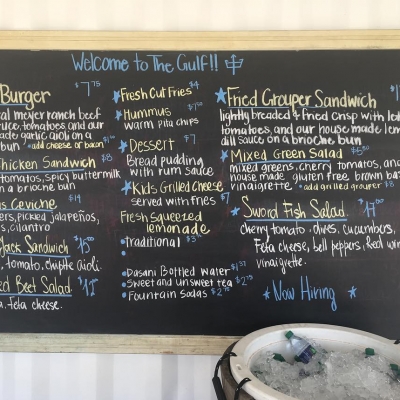 Welcome to The Gulf!!
Burger $7.75
meyer ranch beef
tomatoes, and our
made garlic aioli on a
bun *add cheese or bacon
Chicken Sandwich $8
tomatoes, spicy buttermilk
on a brioche bun
Ceviche $14
pickled jalapeños,
cilantro
Jack Sandwich
tomato, chipotle aioli.
Beet Salad
feta cheese.
Fresh Cut Fries $4
Hummus
warm pita chips
Dessert $7
Bread pudding
with rum sauce
Kids Grilled Cheese
served with fries $7
Fresh Squeezed
lemonade
Traditional
Dasani Bottled Water
Sweet and unsweet tea
Fountain sodas
Fried Grouper Sandwich
lightly breaded & fried crisp with
tomatoes, and our house made
dill sauce on a brioche bun
Mixed Green Salad
mixed greens, cherry tomatoes, and
house made gluten free brown
vinaigrette *add grilled grouper $8
Sword Fish Salad
cherry tomato, olives, cucumbers,
Feta cheese, bell peppers, Red
vinaigrette.
Now Hiring